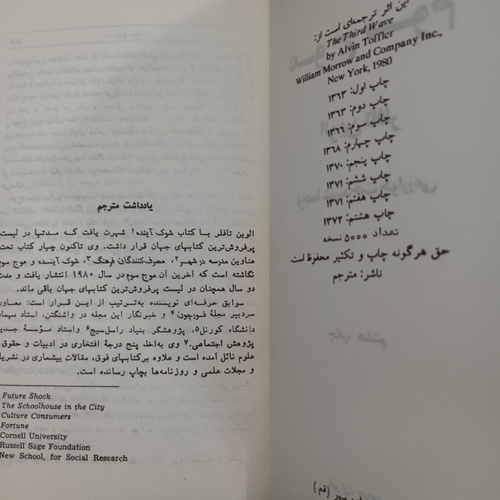 این اثر ترجمه‌ای است از:
The Third Wave
by Alvin Toffler
William Morrow and Company Inc.,
New York, 1980
چاپ اول: ۱۳۶۳
چاپ دوم: ۱۳۶۳
چاپ سوم: ۱۳۶۶
چاپ چهارم: ۱۳۶۸
چاپ پنجم: ۱۳۷۰
چاپ ششم: ۱۳۷۱
چاپ هفتم: ۱۳۷۱
چاپ هشتم: ۱۳۷۲
تعداد ۵۰۰۰ نسخه
حق هرگونه چاپ و تکثیر محفوظ است
ناشر: مترجم
(قم)
یادداشت مترجم
الوین تافلر بسا کتاب شوک آینده۱ شهرت یافت که مدتها در لیست
پرفروش‌ترین کتابهای جهان قرار داشت. وی تاکنون چهار کتاب تحت
عناوین مدرسه در شهر۲، مصرف‌کنندگان فرهنگ۳، شوک آینده و موج سوم
نگاشته است که آخرین آن موج سوم در سال ۱۹۸۰ انتشار یافت و مدت
دو سال همچنان در لیست پرفروش‌ترین کتابهای جهان باقی ماند.
سوابق حرفه‌ای نویسنده به‌ترتیب از این قرار است: معاون
سردبیر مجلهٔ فورچون۴ و خبرنگار این مجله در واشنگتن، استاد میهمان
دانشگاه کورنل۵، پژوهشگر بنیاد راسل‌سیج۶ و استاد مؤسسهٔ جدید
پژوهش اجتماعی.۷ وی به‌اخذ پنج درجهٔ افتخاری در ادبیات و حقوق و
علوم نائل آمده است و علاوه برکتابهای فوق، مقالات بیشماری در نشریات
و مجلات علمی و روزنامه‌ها بچاپ رسانده است.
Future Shock
The Schoolhouse in the City
Culture Consumers
Fortune
Cornell University
Russell Sage Foundation
New School, for Social Research